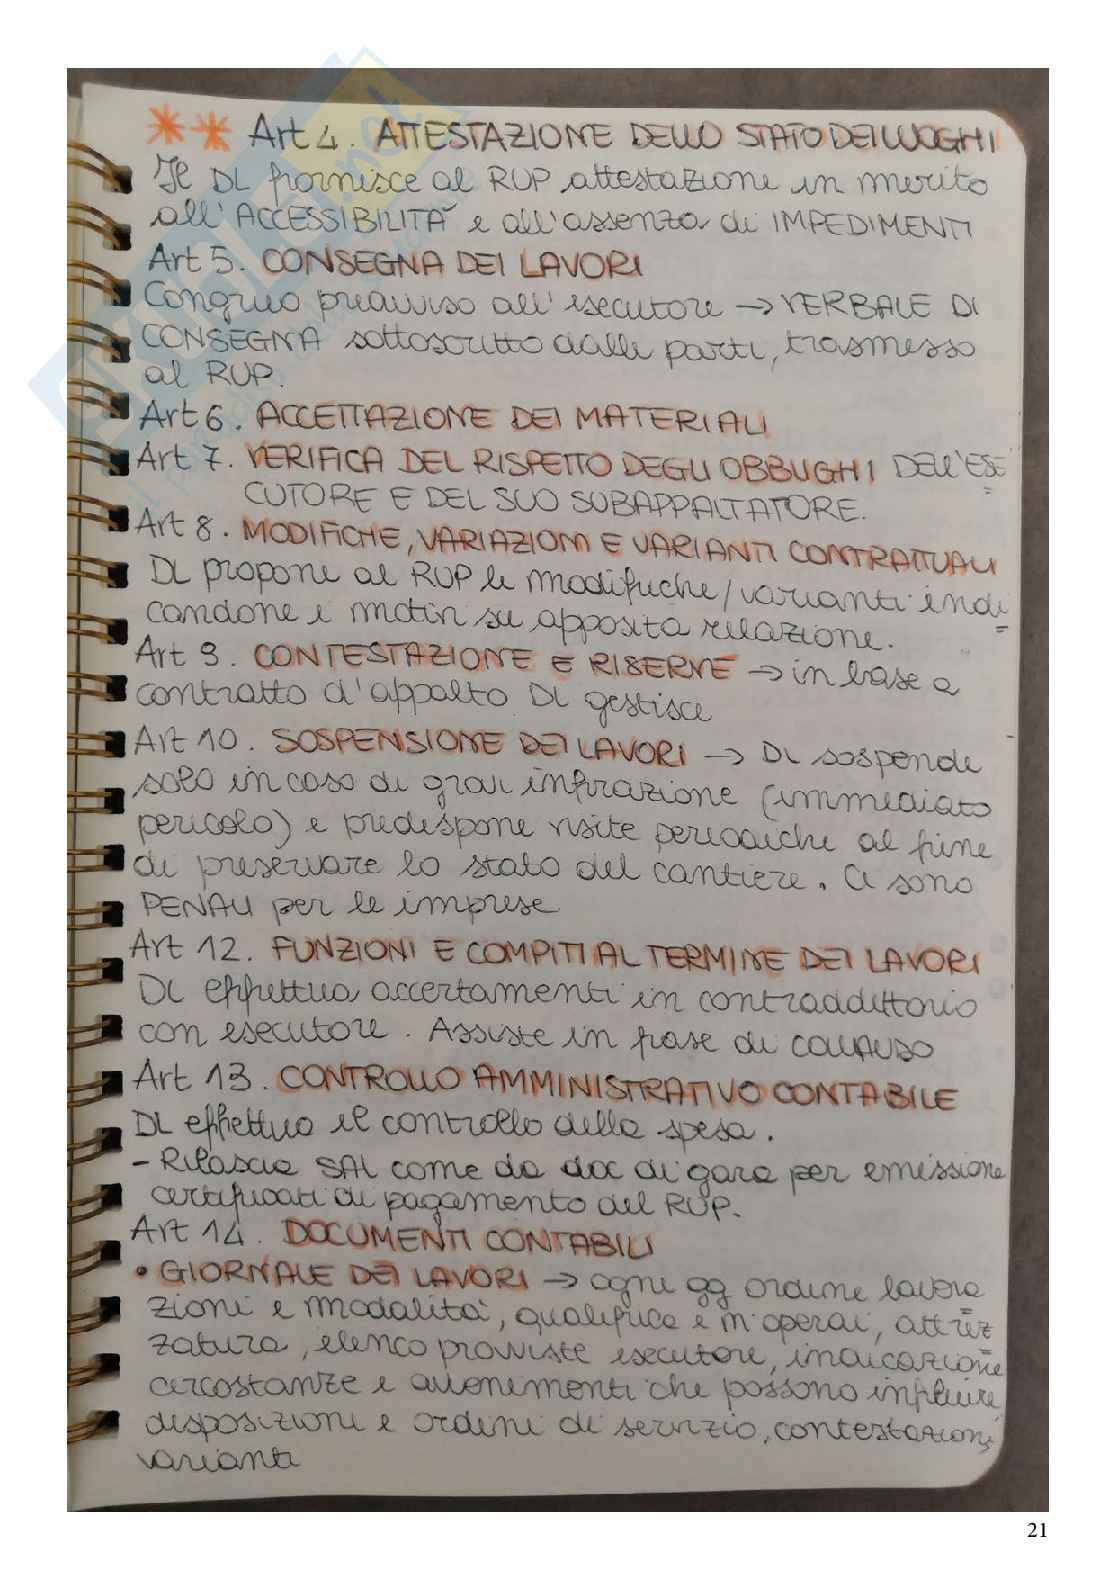 ** Art 4. ATTESTAZIONE DELLO STATO DEI LUOGHI
Il DL fornisce al RUP attestazione in merito
all'ACCESSIBILITÀ e all'assenza di IMPEDIMENTI
Art 5. CONSEGNA DEI LAVORI
Congruo preavviso all'esecutore → VERBALE DI
CONSEGNA sottoscritto dalle parti, trasmesso
al RUP.
Art 6. ACCETTAZIONE DEI MATERIALI
Art 7. VERIFICA DEL RISPETTO DEGLI OBBLIGHI DELL'ESE=
CUTORE E DEL SUO SUBAPPALTATORE.
Art 8. MODIFICHE, VARIAZIONI E VARIANTI CONTRATTUALI
DL propone al RUP le modifiche/varianti indi=
candone i motivi su apposita relazione.
Art 9. CONTESTAZIONE E RISERVE → in base a
contratto d'appalto DL gestisce
Art 10. SOSPENSIONE DEI LAVORI → DL sospende
solo in caso di gravi infrazione (immediato
pericolo) e predispone visite periodiche al fine
di preservare lo stato del cantiere. Ci sono
PENALI per le imprese
Art 12. FUNZIONI E COMPITI AL TERMINE DEI LAVORI
DL effettua accertamenti in contraddittorio
con esecutore. Assiste in fase di COLLAUDO
Art 13. CONTROLLO AMMINISTRATIVO CONTABILE
DL effettua il controllo della spesa.
- Rilascia SAL come da doc di gara per emissione
certificati di pagamento del RUP.
Art 14. DOCUMENTI CONTABILI
• GIORNALE DEI LAVORI → ogni gg ordine lavora=
zioni e modalità, qualifica e n° operai, attrez=
zatura, elenco provviste esecutore, indicazione
circostanze e avvenimenti che possono influire,
disposizioni e ordini di servizio, contestazioni,
varianti
21